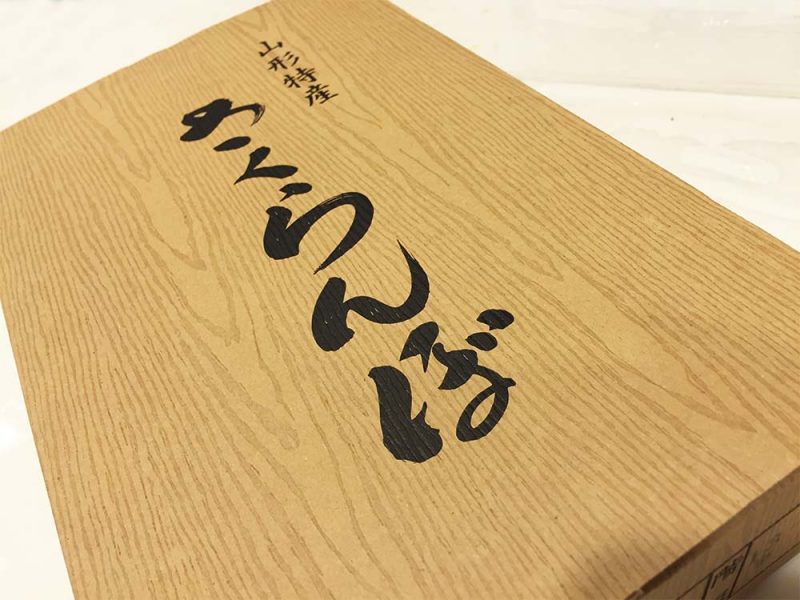 山形特産
さくらんぼ